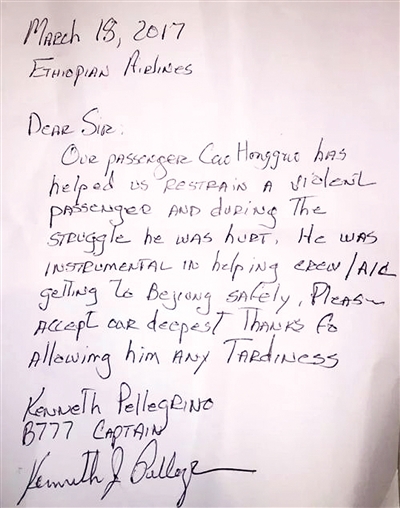 March 18, 2017
Ethiopian Airlines
Dear Sir:
Our passenger Cao Hongguo has
helped us restrain a violent
passenger and during the
struggle he was hurt. He was
instrumental in helping crew/AIC
getting to Bejiong safely. Please
accept our deepest thanks fo
allowing him any tardiness
Kenneth Pellegrino
B777 Captain
Kenneth J Pellegr